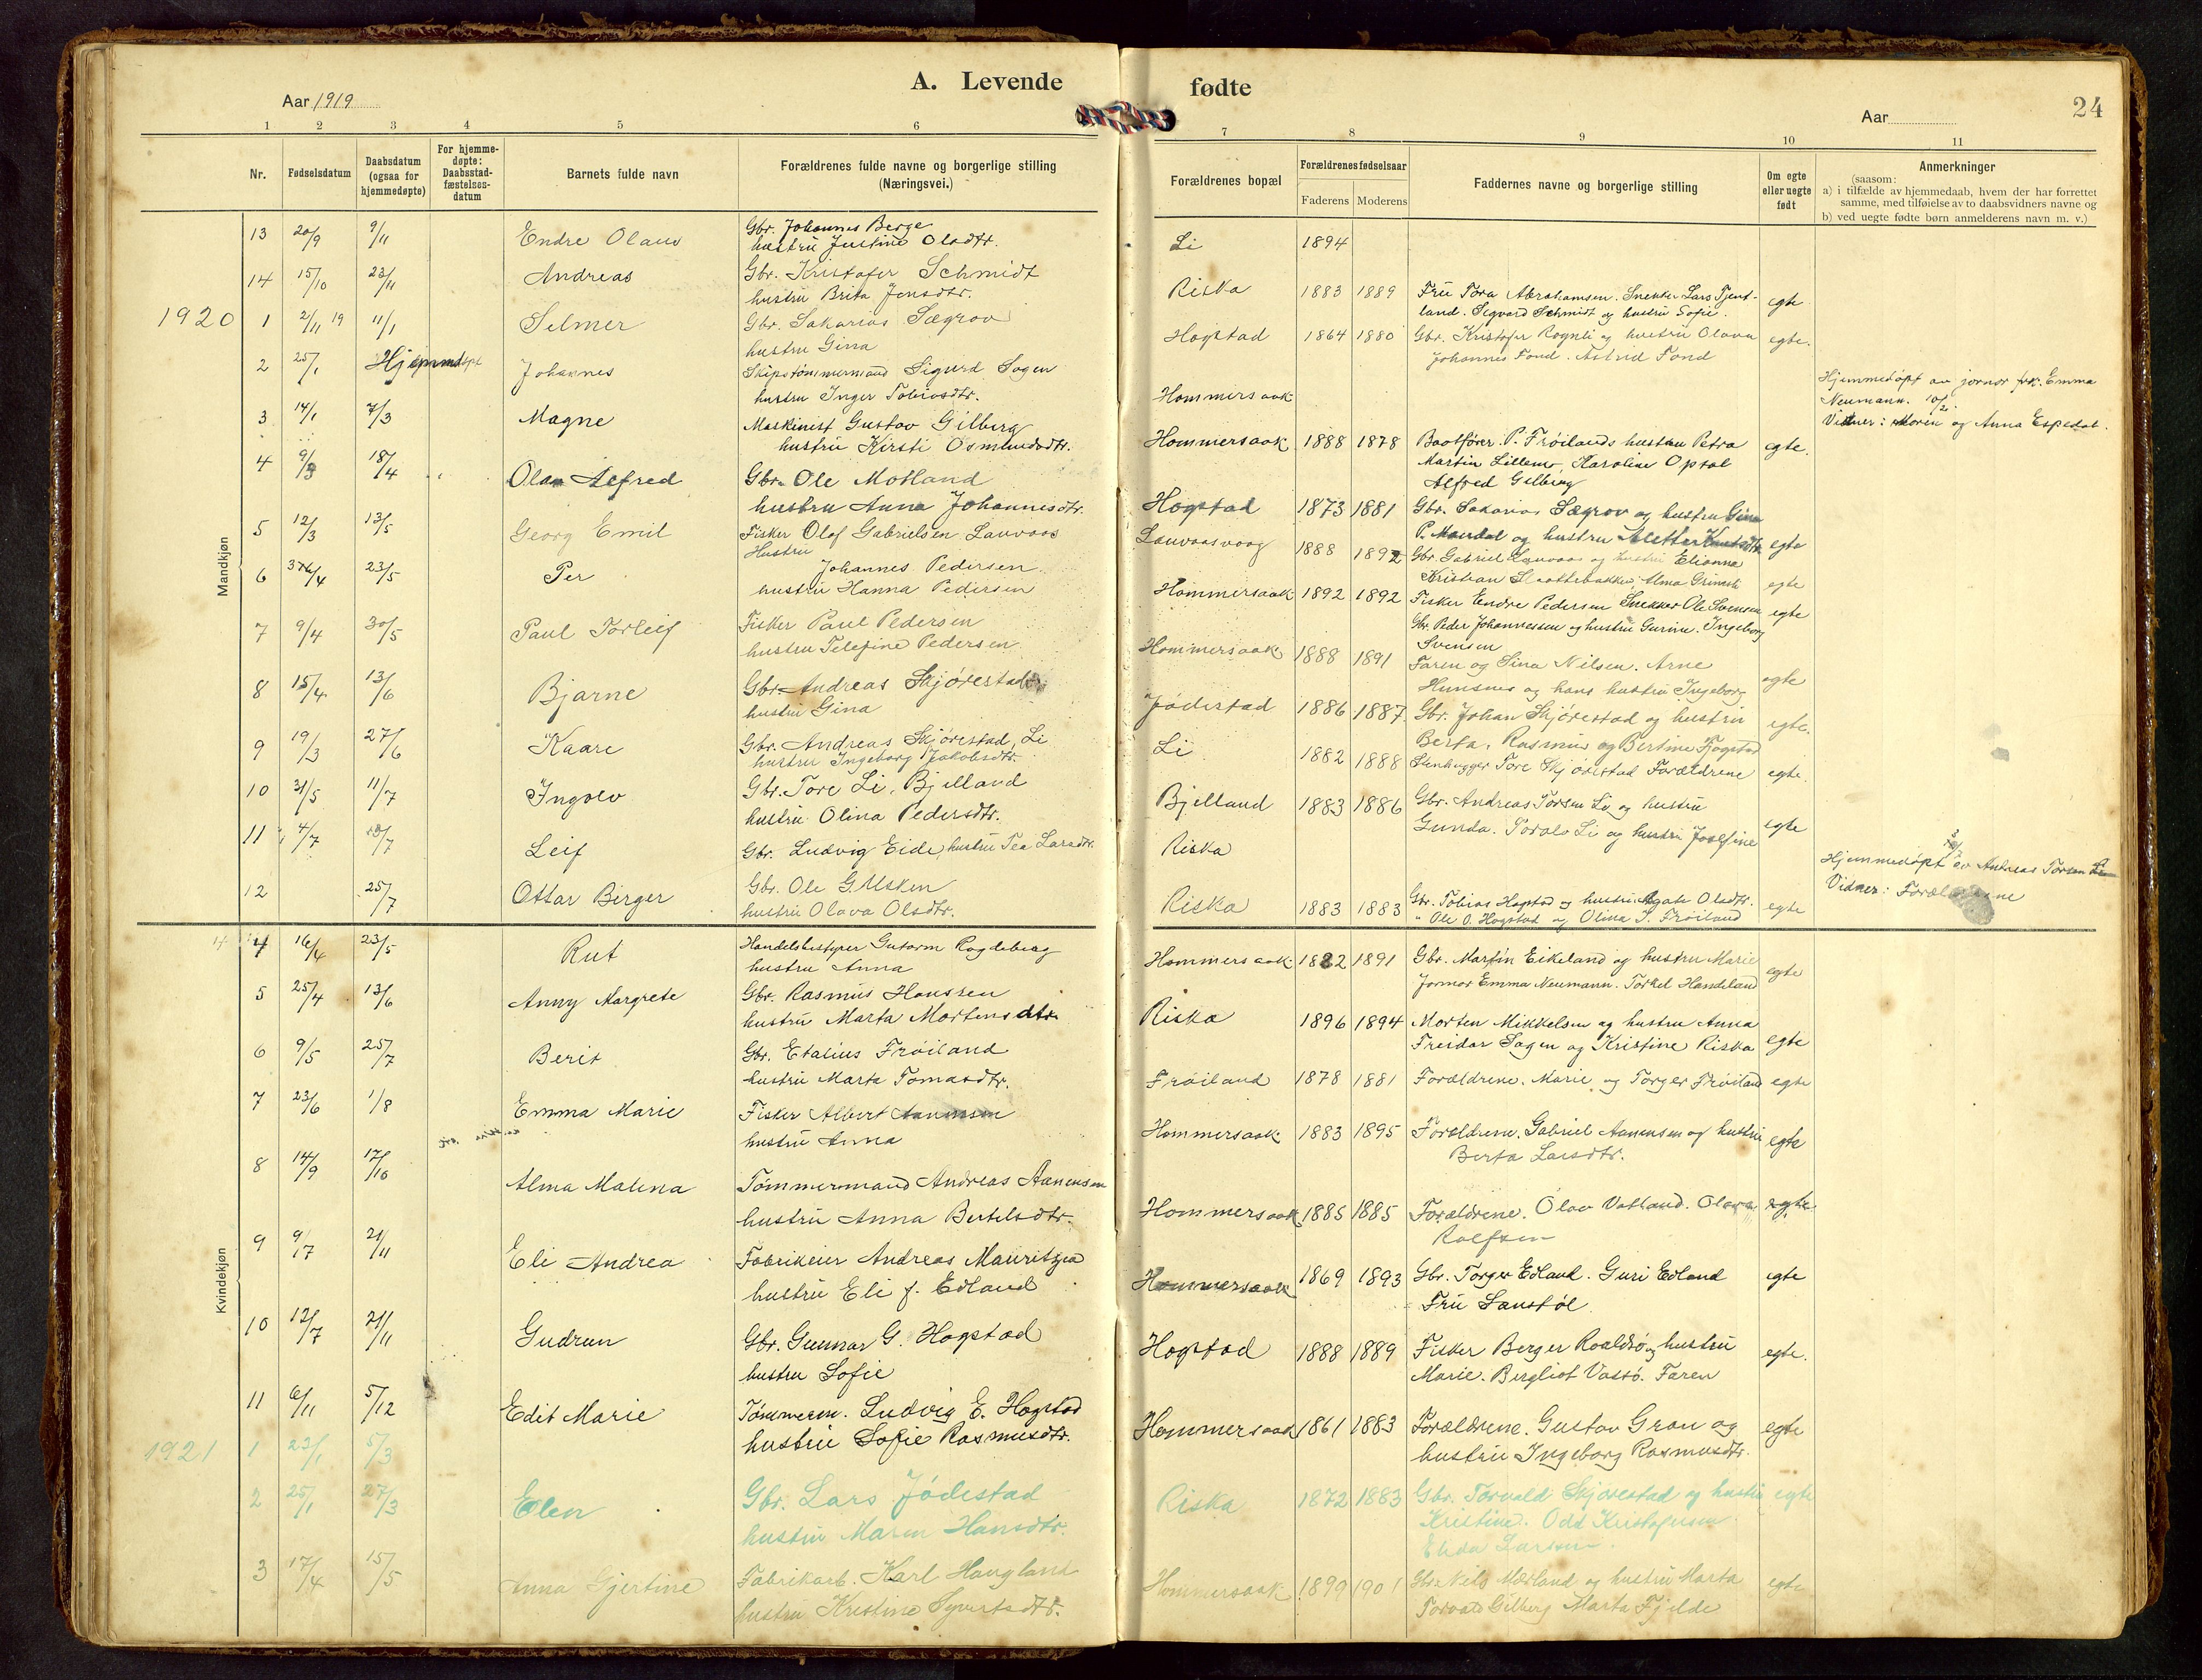 A. Levende fødte
24
Aar 1919
Aar
1 2 3 4 5 6 7 8 9 10 11
Nr.
Fødselsdatum
Daabsdatum (ogsaa for hjemmedøpte)
For hjemmedøpte: Daabsstadfæstelsesdatum
Barnets fulde navn
Forældrenes fulde navne og borgerlige stilling (Næringsvei.)
Forældrenes bopæl
Forældrenes fødselsaar
Faderens Moderens
Faddernes navne og borgerlige stilling
Om egte eller uegte født
Anmerkninger
(saasom:
a) i tilfælde av hjemmedaab, hvem der har forrettet
samme, med tilføielse av to daabsvidners navne og
b) ved uegte fødte børn anmelderens navn m. v.)
Mandkjøn
13 20/9 9/11 Endre Olaus Gbr. Johannes Berge Li 1894
hustru Justine Olsdtr.
14 15/10 23/11 Andreas Gbr. Kristofer Schmidt Riska 1883 1889 Fru Tora Abrahamsen. Snekker Lars Tjent- egte
hustru Brita Jensdtr. land. Sigvard Schmidt og hustru Sofie.
1920 1 2/11 19 11/1 Selmer Gbr. Sakarias Sægrov Hogstad 1864 1880 Gbr. Kristofer Rogneli og hustru Olava egte.
hustru Gina Johannes Fond. Astrid Fond
2 25/1 Hjemmedøpt Johannes Skipstømmermand Sigurd Sagen Hommersaak Hjemmedøpt av jormor frk. Emma
hustru Inger Tobiasdtr. Neumann. 10/2.
Vidner: Moren og Anna Espedal.
3 14/1 7/3 Magne Maskinist Gustav Gilberg Hommersaak 1888 1878 Baatfører P. Frøilands hustru Petra egte.
hustru Kirsti Osmundsdtr. Martin Lillemo, Karoline Opsal
Alfred Gilberg
4 18/4 Olav Alfred Gbr. Ole Motland Hogstad 1873 1881 Gbr. Sakarias Sægrov og hustru Gina egte
hustru Anna Johannesdtr. P. Maudal og hustru
5 12/3 13/5 Georg Emil Fisker Olaf Gabrielsen Lauvaas Lauvaasvaag 1888 1892 Gbr. Gabriel Lauvaas og hustru Elianna egte
Hustru Kristian Slaattebakken, Alma Grimsli
6 23/5 Per Johannes Pedersen Hommersaak 1892 1892 Fisker Endre Pedersen Snekker Ole Svensen egte
hustru Hanna Pedersen Gbr. Peder Johannessen og hustru Gurine. Ingeborg
Svensen
7 9/4 30/5 Paul Torleif Fisker Paul Pedersen Hommersaak 1888 1891 Faren og Sina Nilsen. Arne egte
hustru Telefine Pedersen Hunsnes og hans hustru Ingeborg
8 15/4 13/6 Bjarne Gbr. Andreas Skjørestad Jødestad 1886 1887 Gbr. Johan Skjørestad og hustru egte.
hustru Gina Berta. Rasmus og Bertine Fjogstad
9 19/3 27/6 Kaare Gbr. Andreas Skjørestad, Li Li 1882 1888 Stenhugger Tore Skjørestad Forældrene egte.
hustru Ingeborg Jakobsdtr.
10 31/5 11/7 Ingolv Gbr. Tore Li, Bjelland Bjelland 1883 1886 Gbr. Andreas Torsen Li og hustru egte
hustru Olina Pedersdtr. Gunda. Toralv Li og hustru Josefine
11 4/7 Leif Gbr. Ludvig Eide, hustru Tea Larsdtr. Riska Hjemmedøpt av Andreas Torsen Li
Vidner: Forældrene
12 25/7 Ottar Birger Gbr. Ole G. Usken Riska 1883 1883 Gbr. Tobias Hogstad og hustru Agate Olsdtr. egte
hustru Olava Olsdtr. " Ole O. Hogstad og Olina T. Frøiland
Kvindekjøn
4 4 16/4 23/5 Rut Handelsbestyrer Gutorm Rogdeberg Hommersaak 1882 1891 Gbr. Martin Eikeland og hustru Marie egte
hustru Anna Jormor Emma Neumann. Torkel Handeland
5 25/4 13/6 Anny Margrete Gbr. Rasmus Hanssen Riska 1896 1894 Morten Mikkelsen og hustru Anna egte
hustru Marta Mortensdtr. Freidar Sagen og Kristine Riska
6 9/5 25/7 Berit Gbr. Etalius Frøiland Frøiland 1878 1881 Forældrene. Marie og Torger Frøiland egte
hustru Marta Tomasdtr.
7 23/6 1/8 Emma Marie Fisker Albert Aanensen Hommersaak 1883 1895 Forældrene. Gabriel Aanensen og hustru egte
hustru Anna Berta Larsdtr.
8 14/9 17/10 Alma Malena Tømmermand Andreas Aanensen Hommersaak 1885 1885 Forældrene. Olav Vatland. Olava egte.
hustru Anna Bertelsdtr. Rolfsen
9 9/7 21/11 Eli Andrea Fabrikeier Andreas Mauritzen Hommersaak 1869 1893 Gbr. Torger Edland. Guri Edland egte
hustru Eli f. Edland Fru Sanstøl
10 12/7 21/11 Gudrun Gbr. Gunnar G. Hogstad Hogstad 1888 1889 Fisker Berger Roaldsø og hustru egte.
hustru Sofie Marie. Bergliot Vassø. Faren
11 6/11 5/12 Edit Marie Tømmerm. Ludvig E. Hogstad Hommersaak 1861 1883 Forældrene. Gustav Gran og egte
hustru Sofie Rasmusdtr. hustru Ingeborg Rasmusdtr.
1921 1 23/1 5/3
2 25/1 27/3 Elen Gbr. Lars Jødestad Riska 1872 1883 Gbr. Torvald Skjørestad og hustru egte
hustru Maren Hansdtr. Kristine. Odd Kristofersen
Larsen.
3 17/4 15/5 Anna Gjertine Fabrikarb. Karl Haugland Hommersaak 1899 1901 Gbr. Nils Mæland og hustru Marta egte
hustru Kristine Syvertsdtr. Torvald Gilberg Marta Fjelde